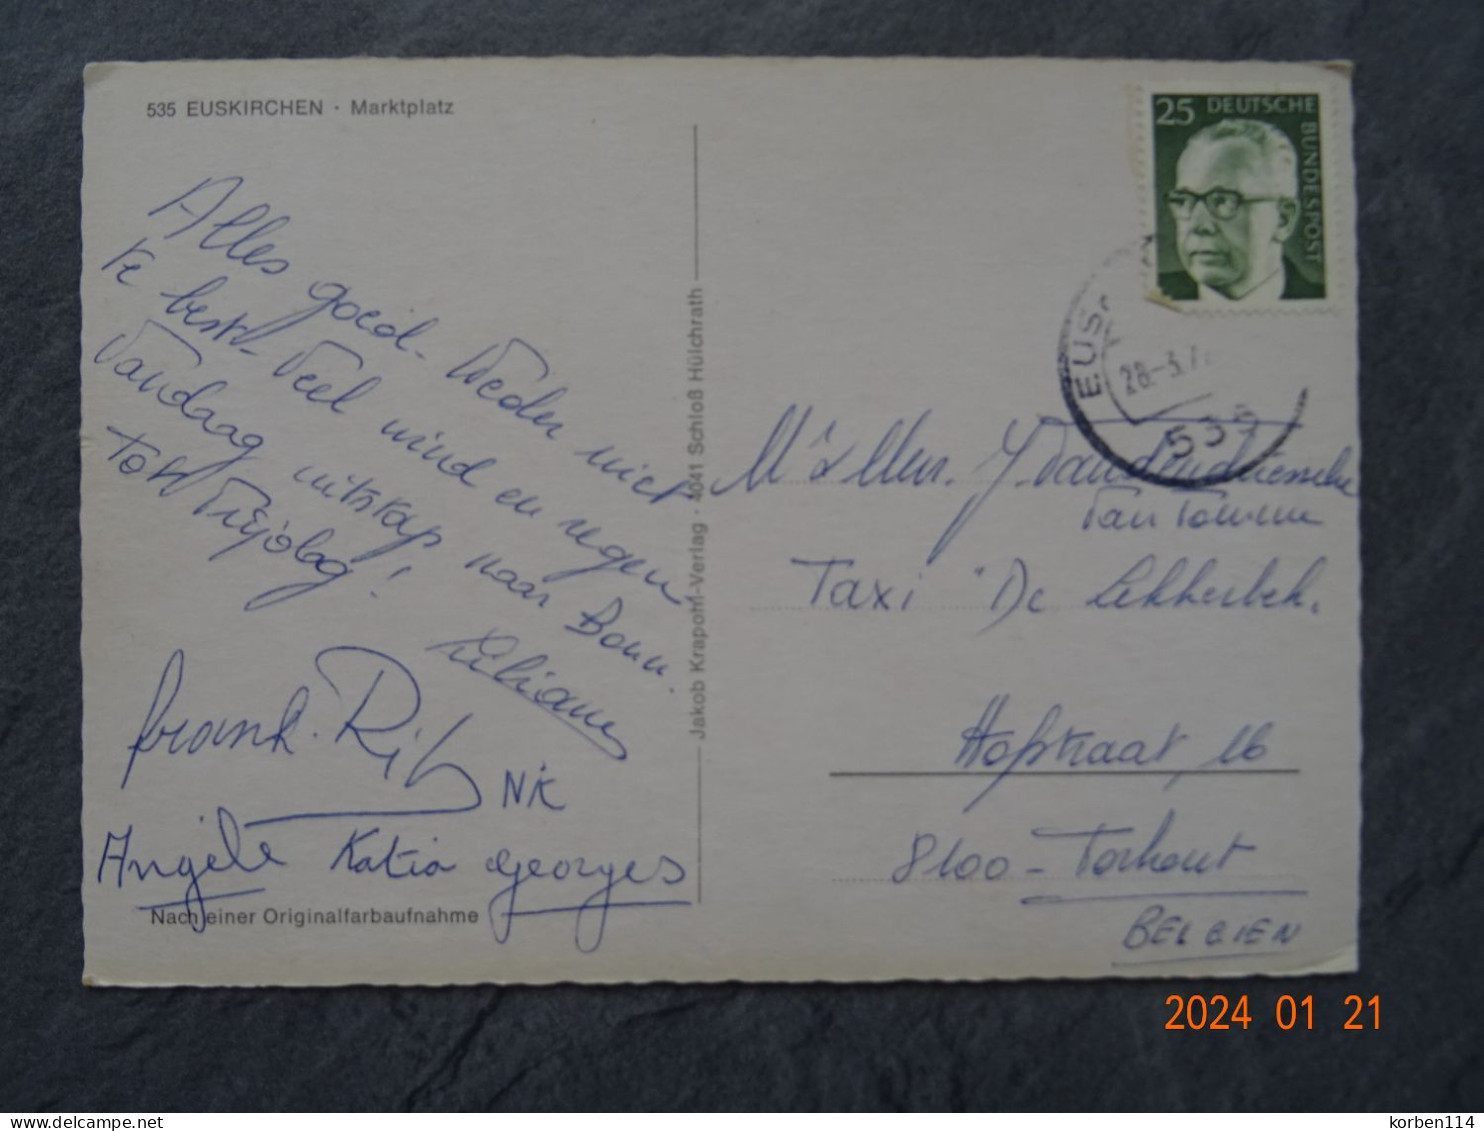 535 EUSKIRCHEN · Marktplatz
Alles goed. Weder niet
te best. Veel wind en regen
Vandaag uitstap naar Bonn.
Tot Vrijdag!
Liliane
Frank. Rik
NK
Angèle Katia Georges
Nach einer Originalfarbaufnahme
Jakob Krapohl-Verlag · 4041 Schloß Hülchrath
25 DEUTSCHE BUNDESPOST
EUS
28.-3.7
535
Mr & Mevr. J. Vandendriessche
Van Tomme
Taxi "De Lekkerbek.
Hofstraat, 16
8100 - Torhout
BELGIEN
2024 01 21
korben114